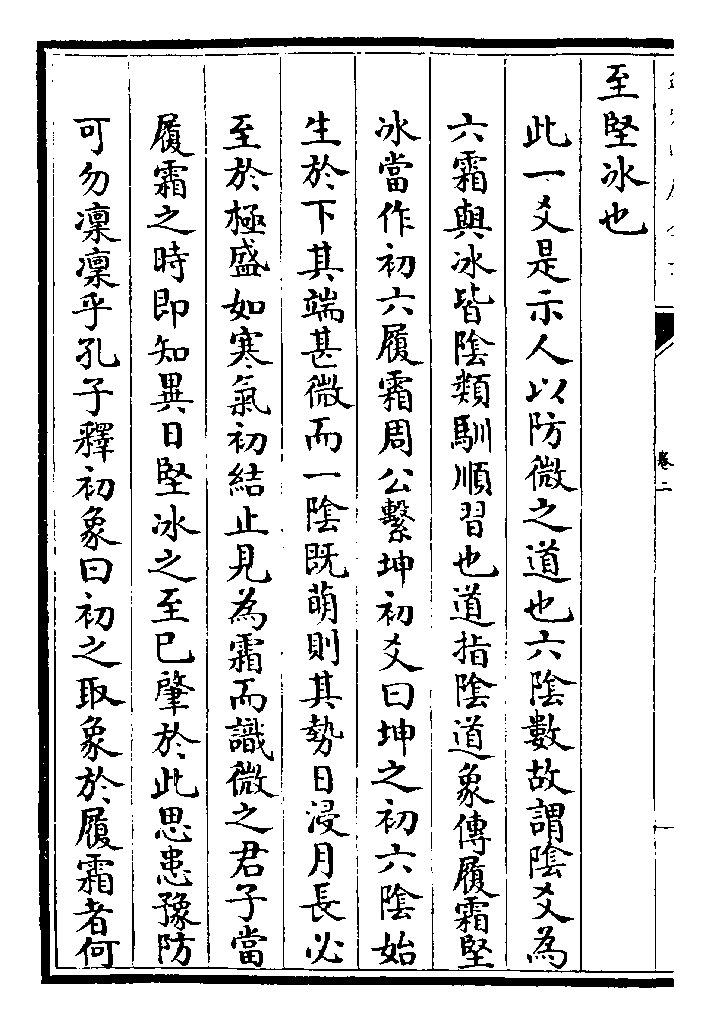 至堅冰也
此一爻是示人以防微之道也六陰數故謂陰爻為
六霜與冰皆陰類馴順習也道指陰道象傳履霜堅
冰當作初六履霜周公繫坤初爻曰坤之初六陰始
生於下其端甚微而一陰既萌則其勢日浸月長必
至於極盛如寒氣初結止見為霜而識微之君子當
履霜之時即知異日堅冰之至已肇於此思患豫防
可勿凜凜乎孔子釋初象曰初之取象於履霜者何
卷二